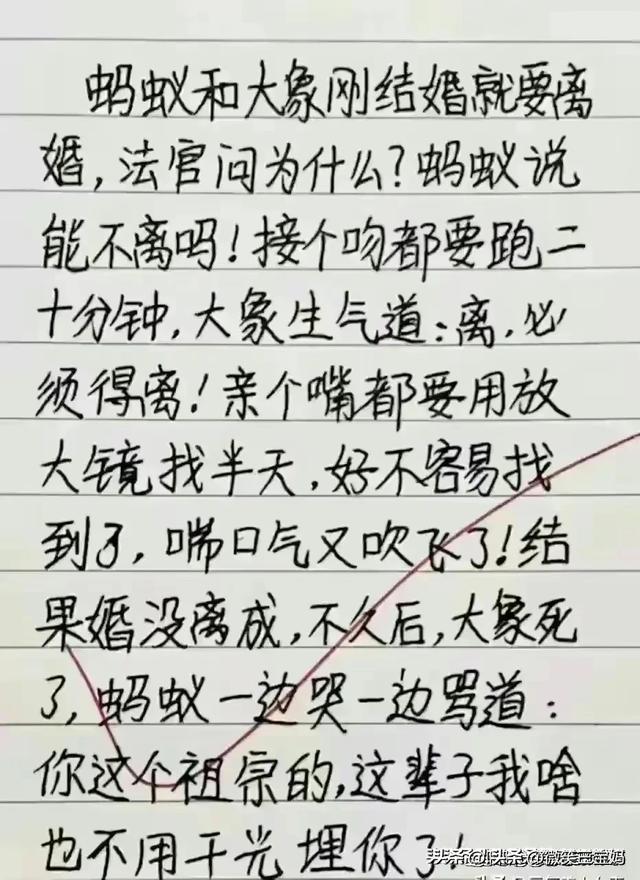 蚂蚁和大象刚结婚就要离
婚,法官问为什么?蚂蚁说
能不离吗!接个吻都要跑二
十分钟,大象生气道:离.必
须得离!亲个嘴都要用放
大镜找半天,好不容易找
到了,喘口气又吹飞了!结
果婚没离成,不久后,大象死
了,蚂蚁一边哭一边骂道:
你这个祖宗的,这辈子我啥
也不用干光埋你了!